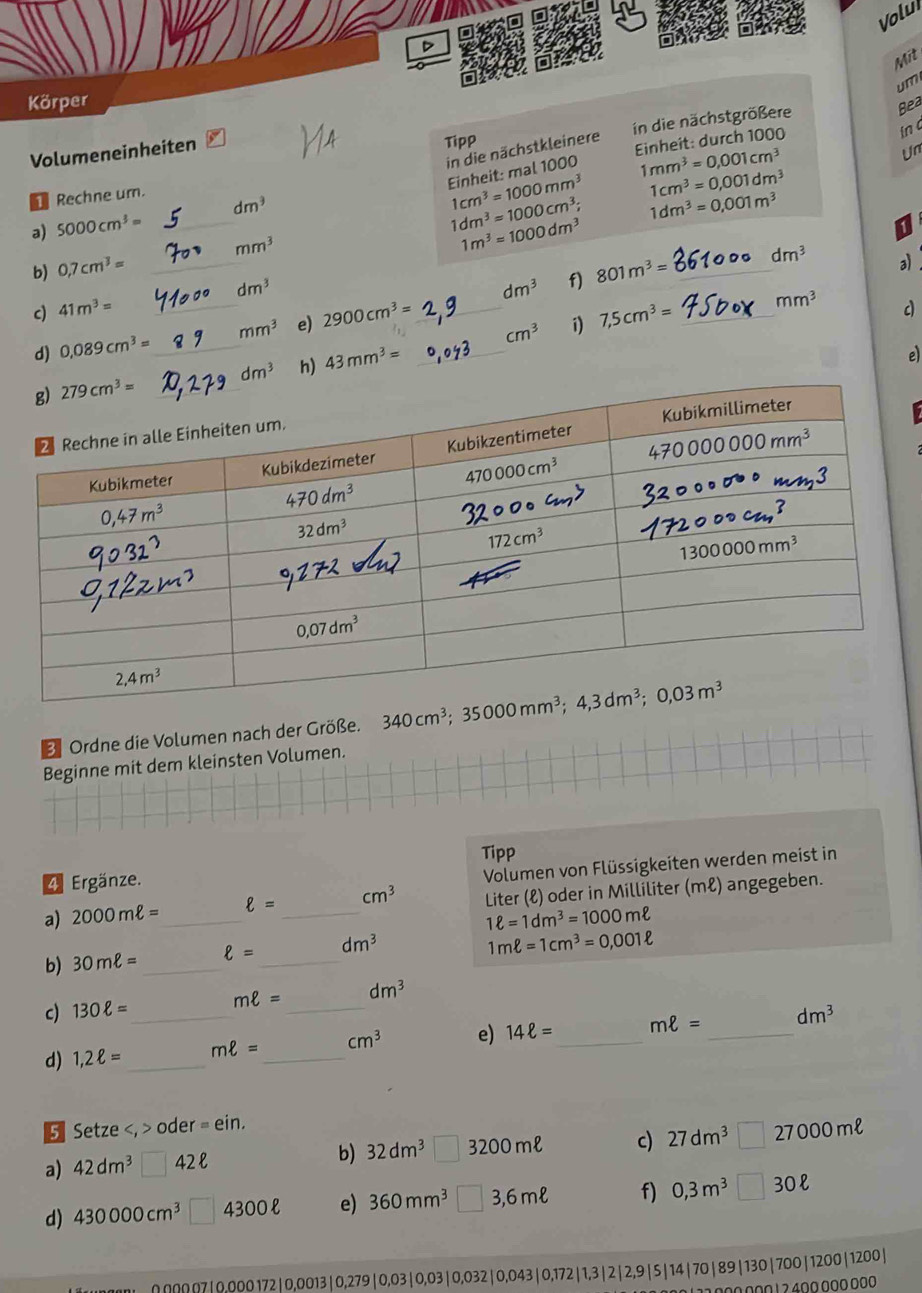 Körper
Volumeneinheiten
Tipp
in die nächstkleinere
Einheit: mal 1000
1 cm³ = 1000 mm³
1 dm³ = 1000 cm³;
1 m³ = 1000 dm³
in die nächstgrößere
Einheit: durch 1000
1 mm³ = 0,001 cm³
1 cm³ = 0,001 dm³
1 dm³ = 0,001 m³
1 Rechne um.
a) 5000 cm³ = 5 dm³
b) 0,7 cm³ = 700 mm³
c) 41 m³ = 41000 dm³
d) 0,089 cm³ = 89 mm³ e) 2900 cm³ = 2,9 dm³ f) 801 m³ = 861000 dm³
g) 279 cm³ = 0,279 dm³ h) 43 mm³ = 0,043 cm³ i) 7,5 cm³ = 7500 mm³
2 Rechne in alle Einheiten um.
Kubikmeter Kubikdezimeter Kubikzentimeter Kubikmillimeter
0,47 m³ 470 dm³ 470 000 cm³ 470 000 000 mm³
9032³ 32 dm³ 32000 cm³ 32000000 mm3
0,172m³ 0,172 dm3 172 cm³ 172000 cm³
1 300 000 mm³
0,07 dm³
2,4 m³
3 Ordne die Volumen nach der Größe. 340 cm³; 35 000 mm³; 4,3 dm³; 0,03 m³
Beginne mit dem kleinsten Volumen.
4 Ergänze.
a) 2000 mℓ = ____ ℓ = ____ cm³
b) 30 mℓ = ____ ℓ = ____ dm³
c) 130 ℓ = ____ mℓ = ____ dm³
d) 1,2 ℓ = ____ mℓ = ____ cm³ e) 14 ℓ = ____ mℓ = ____ dm³
Tipp
Volumen von Flüssigkeiten werden meist in
Liter (ℓ) oder in Milliliter (mℓ) angegeben.
1 ℓ = 1 dm³ = 1000 mℓ
1 mℓ = 1 cm³ = 0,001 ℓ
5 Setze <, > oder = ein.
a) 42 dm³ □ 42 ℓ b) 32 dm³ □ 3200 mℓ c) 27 dm³ □ 27 000 mℓ
d) 430 000 cm³ □ 4300 ℓ e) 360 mm³ □ 3,6 mℓ f) 0,3 m³ □ 30 ℓ
0,000 07 | 0,000 172 | 0,0013 | 0,279 | 0,03 | 0,03 | 0,032 | 0,043 | 0,172 | 1,3 | 2 | 2,9 | 5 | 14 | 70 | 89 | 130 | 700 | 1200 | 1200 |
2 400 000 000
Mit
um
Bea
in d
1
a)
c)
e)